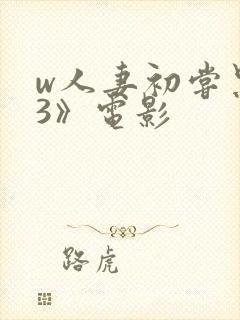 w人妻初尝黑
3》电影
路虎